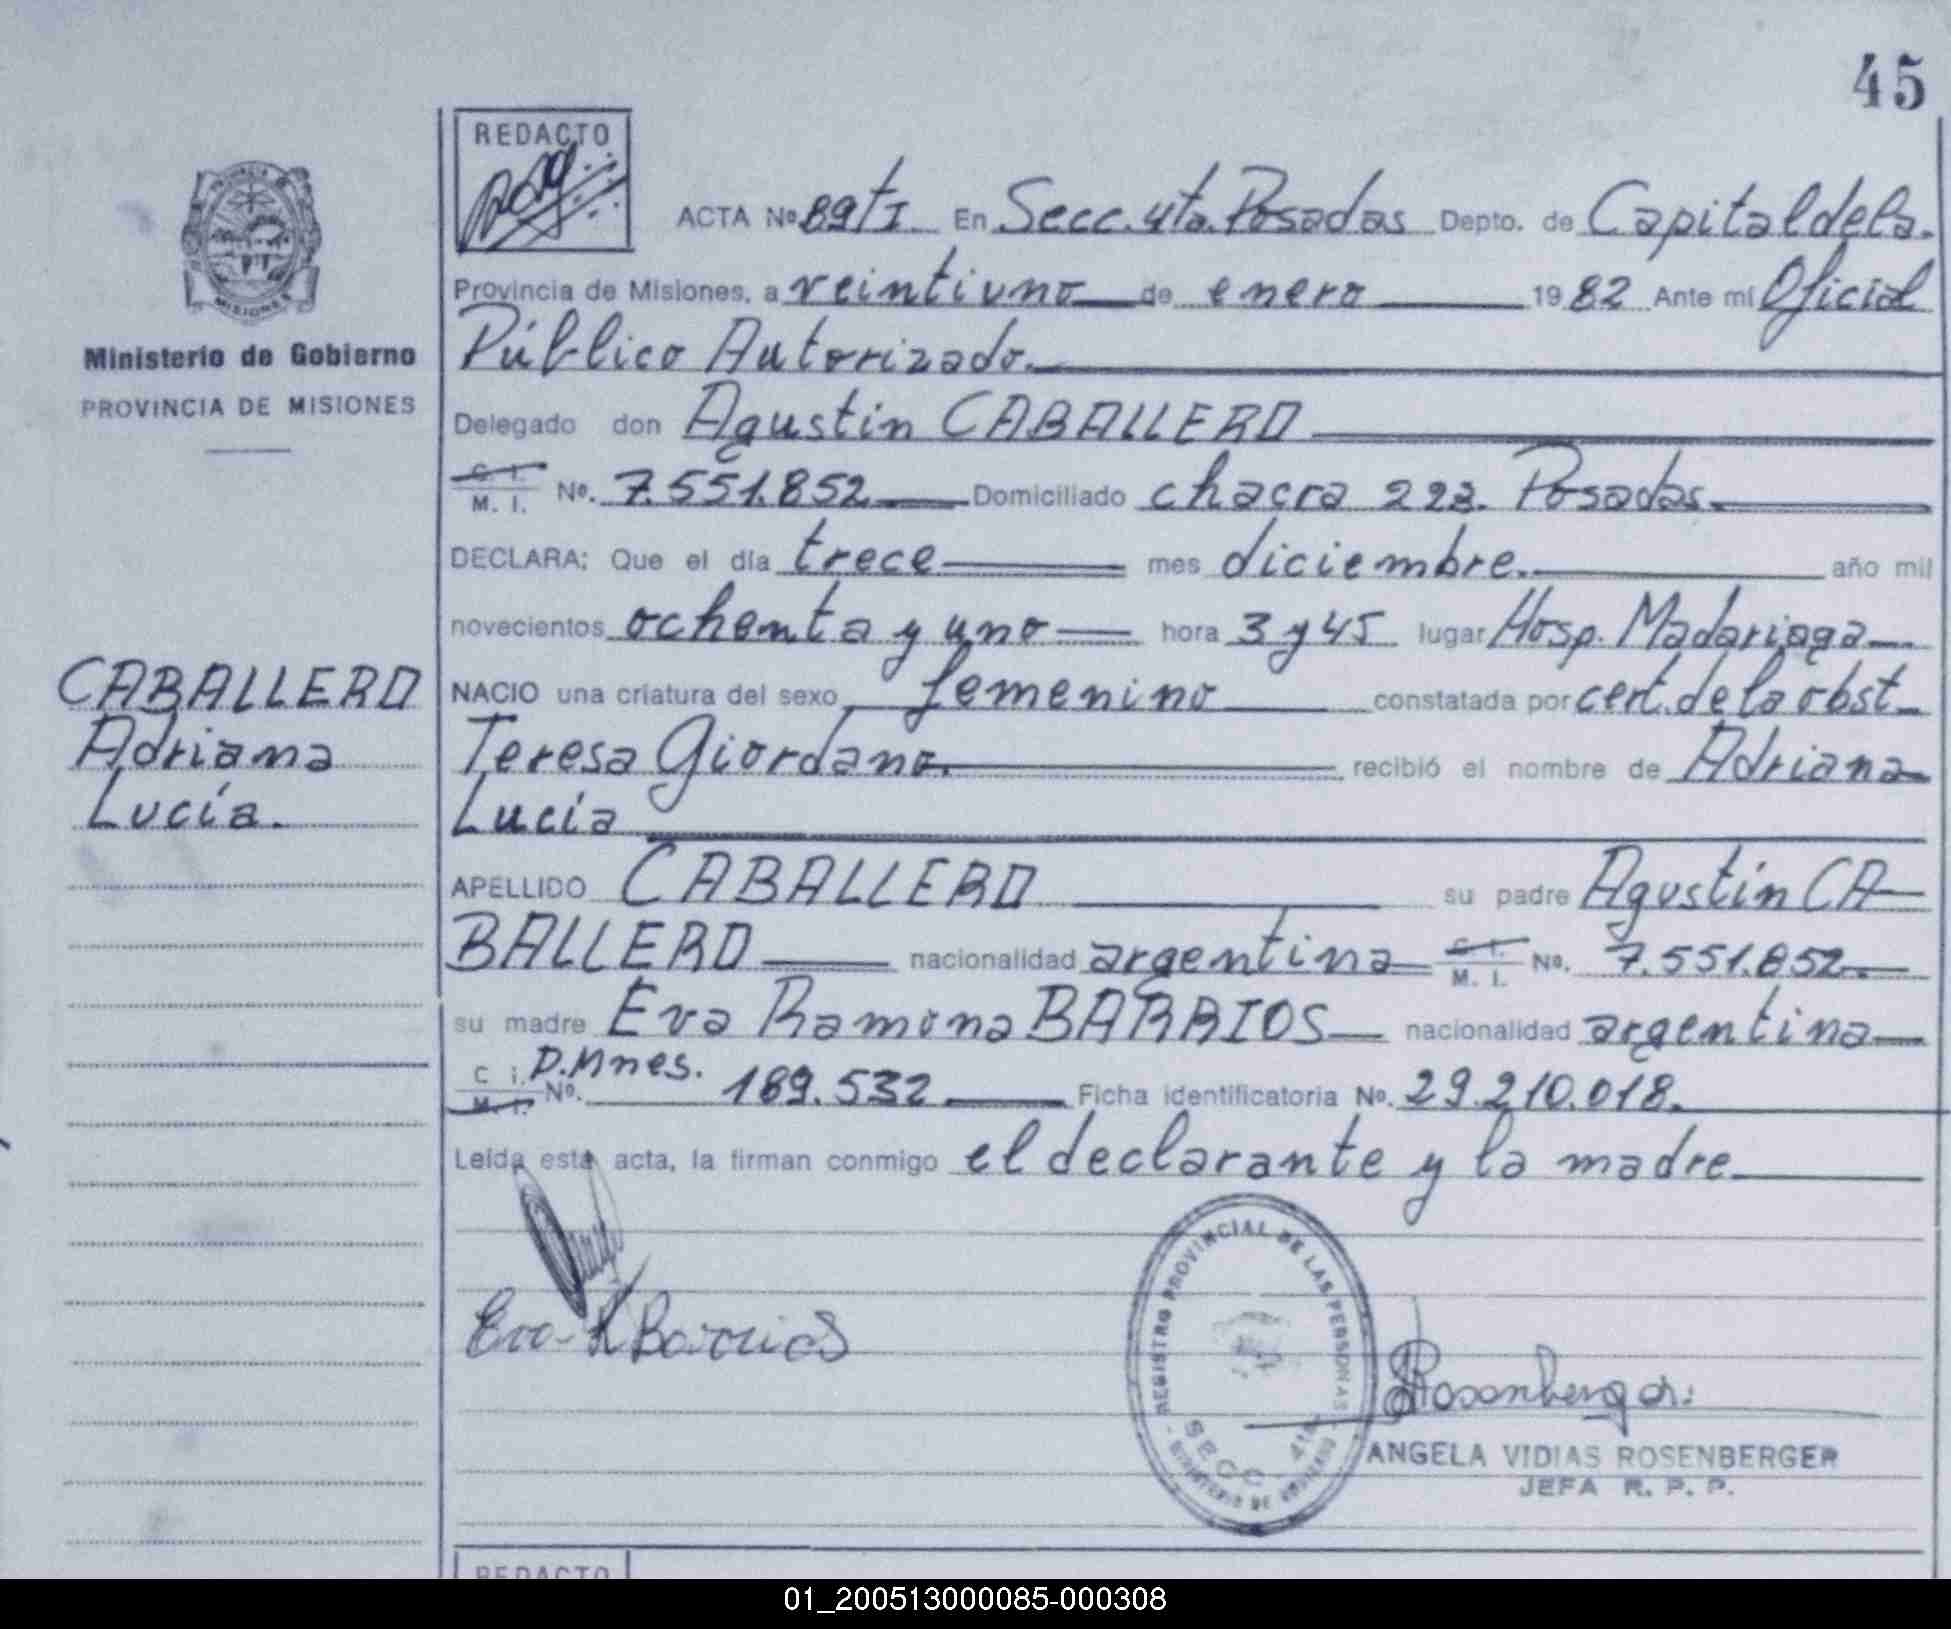 45
REDACTO
ACTA Nº 89 t I En Secc. 4ta. Posadas Depto. de Capital de la
Provincia de Misiones, a veintiuno de enero 1982 Ante mí Oficial
Público Autorizado.
Delegado don Agustin CABALLERO
C. I.
M. I. Nº. 7.551.852 Domiciliado chacra 223. Posadas.
DECLARA: Que el día trece mes diciembre. año mil
novecientos ochenta y uno hora 3 y 45 lugar Hosp. Madariaga
NACIO una criatura del sexo femenino constatada por cert. de la obst
Teresa Giordano. recibió el nombre de Adriana
Lucía
APELLIDO CABALLERO su padre Agustin CA-
BALLERO nacionalidad argentina C. I. M. I. Nº. 7.551.852.
su madre Eva Ramona BARRIOS nacionalidad argentina
C. I. M. I. Nº. P. Mnes. 189.532 Ficha identificatoria Nº. 29.210.018.
Leída esta acta, la firman conmigo el declarante y la madre
Eva R Barrios
Rosenberger
ANGELA VIDIAS ROSENBERGER
JEFA R. P. P.
REGISTRO PROVINCIAL DE LAS PERSONAS
SECC. 4ta
MINISTERIO DE GOBIERNO
PROVINCIA DE
MISIONES
Ministerio de Gobierno
PROVINCIA DE MISIONES
CABALLERO
Adriana
Lucía.
REDACTO
01_200513000085-000308